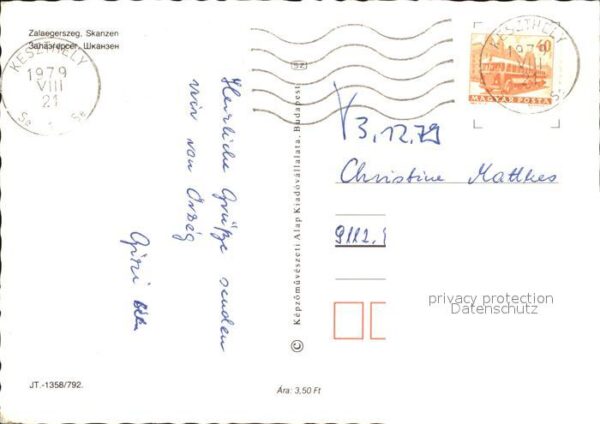 Zalaegerszeg, Skanzen
Залаэгерсег, Шканзен
KESZTHELY
1979
VIII
21
KESZTHELY
1979
VIII
40
MAGYAR POSTA
3.12.79
Christine Matthes
9112.
Herzliche Grüße senden
wir von Örség
Gizi
Képzőművészeti Alap Kiadóvállalata, Budapest
privacy protection
Datenschutz
JT.-1358/792.
Ára: 3,50 Ft